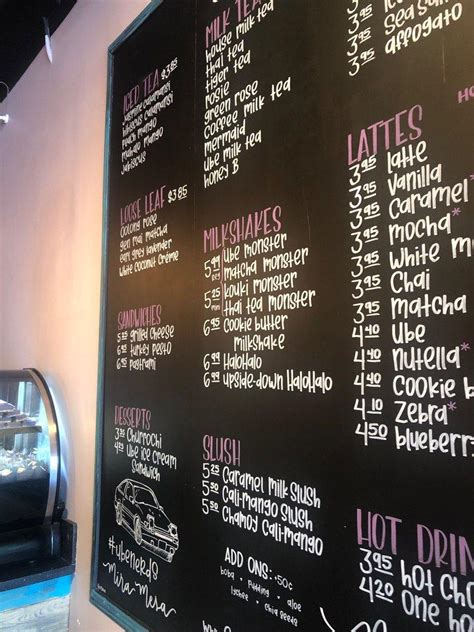 ICED TEA $3.85
jasmine calamansi
hibiscus calamansi
peach mango
mahalo mango
jabiscus
LOOSE LEAF $3.85
Oolong rose
gen mai matcha
earl grey lavender
white coconut crème
SANDWICHES
5.25 grilled cheese
6.95 turkey pesto
6.95 pastrami
DESSERTS
3.95 Churrochi
4.25 Ube ice cream
Sandwich
#ubenerds
Mira Mesa
MILK TEA
house milk tea
thai tea
tiger tea
rosie
green rose
coffee milk tea
mermaid
ube milk tea
honey B
MILKSHAKES
5.99 Ube monster
matcha monster
5.25 kouki monster
thai tea monster
6.95 Cookie butter
milkshake
6.99 HaloHalo
6.99 upside-down HaloHalo
SLUSH
5.25 Caramel Milk Slush
5.50 Cali-mango Slush
5.50 Chamoy Cali-mango
ADD ONS: +50¢
boba • Pudding • aloe
lychee • Chia Seeds
3.95
3.95 Sea Sa
3.95 affogato
HO
LATTES
3.95 latte
3.95 Vanilla
3.95 Caramel*
3.95 mocha*
3.95 White mo
3.95 Chai
3.95 matcha
4.40 Ube
4.40 nutella*
4.40 Cookie b
4.10 Zebra*
4.50 blueberr
HOT DRIN
3.95 hot Cho
4.20 one ho